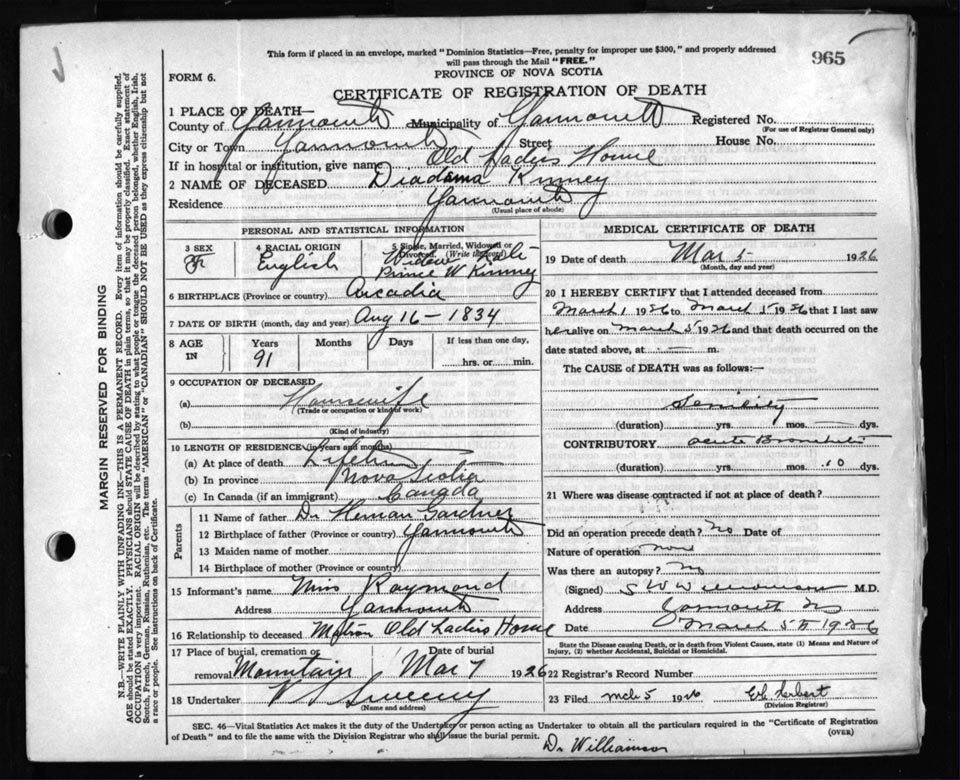 This form if placed in an envelope, marked "Dominion Statistics—Free, penalty for improper use $300," and properly addressed
will pass through the Mail "FREE."
965
FORM 6.
PROVINCE OF NOVA SCOTIA
CERTIFICATE OF REGISTRATION OF DEATH
1 PLACE OF DEATH—
County of Yarmouth Municipality of Yarmouth Registered No.
(For use of Registrar General only)
City or Town Yarmouth Street House No.
If in hospital or institution, give name Old Ladies Home
2 NAME OF DECEASED Diadama Kinney
Residence Yarmouth
(Usual place of abode)
PERSONAL AND STATISTICAL INFORMATION
3 SEX F
4 RACIAL ORIGIN English
5 Single, Married, Widowed or
Divorced, (Write the word)
Widow
Prince W Kinney
6 BIRTHPLACE (Province or country) Arcadia
7 DATE OF BIRTH (month, day and year) Aug 16 – 1834
8 AGE IN Years 91 Months Days If less than one day, hrs. or min.
9 OCCUPATION OF DECEASED
(a) Housewife
(Trade or occupation or kind of work)
(b)
(Kind of industry)
10 LENGTH OF RESIDENCE (in years and months)
(a) At place of death
(b) In province Nova Scotia
(c) In Canada (if an immigrant) Canada
Parents
11 Name of father Dr Heman Gardner
12 Birthplace of father (Province or country) Yarmouth
13 Maiden name of mother
14 Birthplace of mother (Province or country)
15 Informant's name Miss Raymond
Address Yarmouth
16 Relationship to deceased Matron Old Ladies Home
17 Place of burial, cremation or removal Mountain Date of burial Mar 7 1926
18 Undertaker V S Sweeny
(Name and address)
MEDICAL CERTIFICATE OF DEATH
19 Date of death Mar 5 1926
(Month, day and year)
20 I HEREBY CERTIFY that I attended deceased from
March 1 1926 to March 5 1926 that I last saw
her alive on March 5 1926 and that death occurred on the
date stated above, at m.
The CAUSE of DEATH was as follows:—
Senility
(duration) yrs. mos. dys.
CONTRIBUTORY acute Bronchitis
(duration) yrs. mos. 10 dys.
21 Where was disease contracted if not at place of death?
Did an operation precede death? No Date of
Nature of operation none
Was there an autopsy? No
(Signed) S W Williamson M.D.
Address Yarmouth NS
Date March 5th 1926
State the Disease causing Death, or in death from Violent Causes, state (1) Means and Nature of
Injury, (2) whether Accidental, Suicidal or Homicidal.
22 Registrar's Record Number
23 Filed mch 5 1926 Herbert
(Division Registrar)
SEC. 46—Vital Statistics Act makes it the duty of the Undertaker or person acting as Undertaker to obtain all the particulars required in the "Certificate of Registration
of Death" and to file the same with the Division Registrar who shall issue the burial permit.
(OVER)
Dr Williamson
MARGIN RESERVED FOR BINDING
N.B.—WRITE PLAINLY WITH UNFADING INK—THIS IS A PERMANENT RECORD. Every item of information should be carefully supplied.
AGE should be stated EXACTLY. PHYSICIANS should STATE CAUSE OF DEATH in plain terms, so that it may be properly classified. Exact statement of
OCCUPATION is very important. RACIAL ORIGIN will be described by stating to what people or tongue the deceased person belonged, whether English, Irish,
Scotch, French, German, Russian, Ruthenian, etc. The terms "AMERICAN" or "CANADIAN" SHOULD NOT BE USED as they express citizenship but not
a race or people. See instructions on back of Certificate.